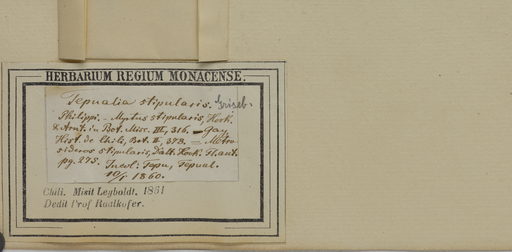 HERBARIUM REGIUM MONACENSE.
Tepualia stipularis. Griseb.
Philippi. - Myrtus stipularis, Hook.
& Arnt. in Bot. Misc. III, 316. - Gay,
Hist. de Chile, Bot. II, 378. - Metro-
sideros stipularis, Dalt. Hook. Fl. ant.
pg. 275. Incol: Tepu, Tepual.
1860.
Chili. Misit Legboldt. 1861
Dedit Prof Radlkofer.